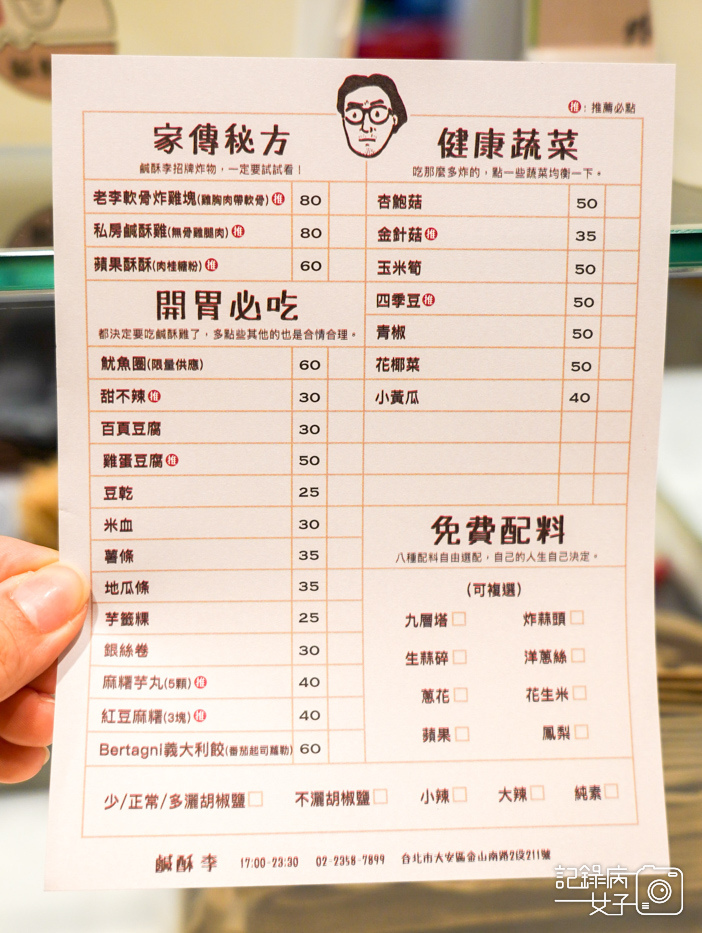 推：推薦必點
家傳秘方
鹹酥李招牌炸物，一定要試試看！
老李軟骨炸雞塊(雞胸肉帶軟骨) 推 80
私房鹹酥雞(無骨雞腿肉) 推 80
蘋果酥酥(肉桂糖粉) 推 60
開胃必吃
都決定要吃鹹酥雞了，多點些其他的也是合情合理。
魷魚圈(限量供應) 60
甜不辣 推 30
百頁豆腐 30
雞蛋豆腐 推 50
豆乾 25
米血 30
薯條 35
地瓜條 35
芋籤粿 25
銀絲卷 30
麻糬芋丸(5顆) 推 40
紅豆麻糬(3塊) 推 40
Bertagni義大利餃(番茄起司蘿勒) 60
健康蔬菜
吃那麼多炸的，點一些蔬菜均衡一下。
杏鮑菇 50
金針菇 推 35
玉米筍 50
四季豆 推 50
青椒 50
花椰菜 50
小黃瓜 40
免費配料
八種配料自由選配，自己的人生自己決定。
(可複選)
九層塔 炸蒜頭
生蒜碎 洋蔥絲
蔥花 花生米
蘋果 鳳梨
少/正常/多灑胡椒鹽 不灑胡椒鹽 小辣 大辣 純素
鹹酥李 17:00-23:30 02-2358-7899 台北市大安區金山南路2段211號
記錄病
女子